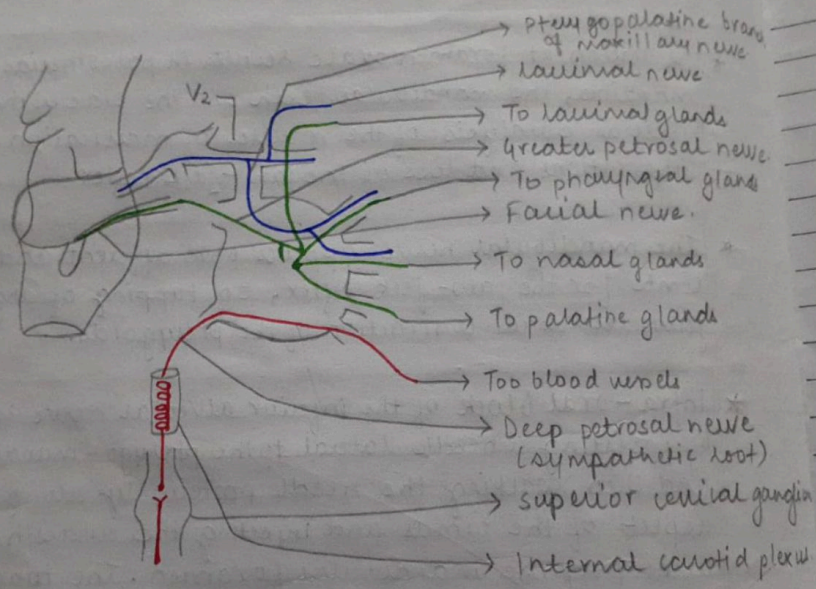 Pterygopalatine bran
of maxillary nerve
V2
lacrimal nerve
To lacrimal glands
Greater petrosal nerve
To pharyngeal glands
Facial nerve.
To nasal glands
To palatine glands
Too blood vessels
Deep petrosal nerve
(sympathetic root)
superior cervical ganglia
Internal carotid plexu